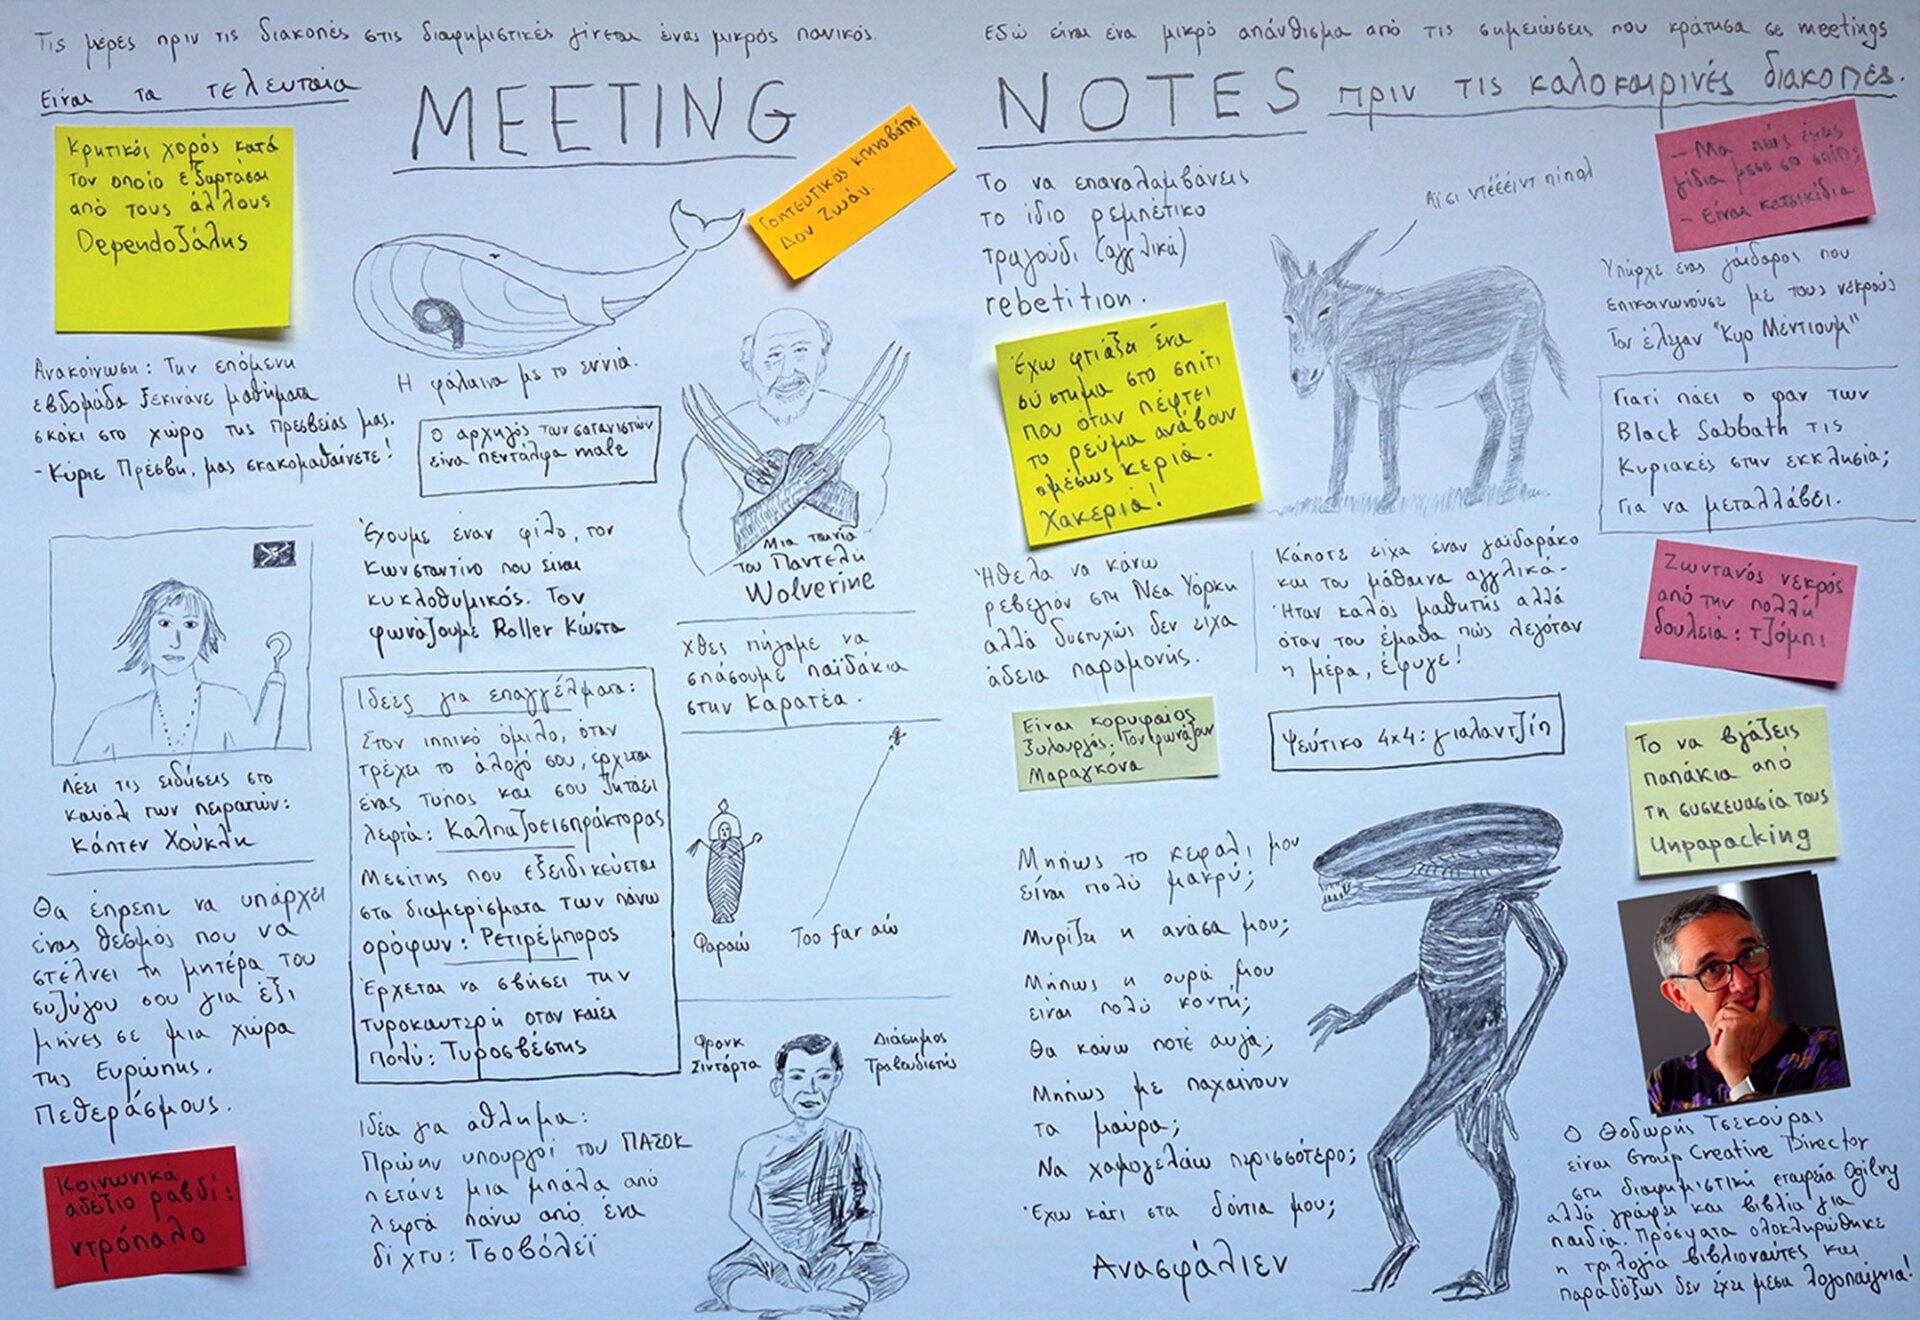 Τις μέρες πριν τις διακοπές στις διαφημιστικές γίνεται ένας μικρός πανικός.
Εδώ είναι ένα μικρό απάνθισμα από τις σημειώσεις που κράτησα σε meetings
Είναι τα τελευταία
MEETING
NOTES
πριν τις καλοκαιρινές διακοπές.
Κρητικός χορός κατά
τον οποίο εξαρτάσαι
από τους άλλους
Dependοζάλης
Ανακοίνωση: Την επόμενη
εβδομάδα ξεκινάνε μαθήματα
σκάκι στο χώρο της Πρεσβείας μας.
- Κύριε Πρέσβη, μας σκακομαθαίνετε!
Λέει τις ειδήσεις στο
κανάλι των πειρατών:
Κάπτεν Χούκλη
Θα έπρεπε να υπάρχει
ένας θεσμός που να
στέλνει τη μητέρα του
συζύγου σου για έξι
μήνες σε μια χώρα
της Ευρώπης.
Πεθεράσμους.
Κοινωνικά
αδέξιο ραβδί:
ντρόπαλο
Η φάλαινα με το εννιά.
Ο αρχηγός των σατανιστών
είναι πεντάλφα male
Έχουμε έναν φίλο, τον
Κωνσταντίνο που είναι
κυκλοθυμικός. Τον
φωνάζουμε Roller Κώστα
Ιδέες για επαγγέλματα:
Στον ιππικό όμιλο, όταν
τρέχει το άλογό σου, έρχεται
ένας τύπος και σου ζητάει
λεφτά: Καλπαζοεισπράκτορας
Μεσίτης που εξειδικεύεται
στα διαμερίσματα των πάνω
ορόφων: Ρετιρέμπορος
Έρχεται να σβήσει την
τυροκαυτερή όταν καίει
πολύ: Τυροσβέστης
Ιδέα για άθλημα:
Πρώην υπουργοί του ΠΑΣΟΚ
πετάνε μια μπάλα από
λεφτά πάνω από ένα
δίχτυ: Τσοβόλεϊ
Γοητευτικός κτηνοβάτης
Δον Ζωάν.
Μια ταινία
του Παντελή
Wolverine
Χθες πήγαμε να
σπάσουμε παϊδάκια
στην Καρατέα.
Φαραώ
Too far αώ
Φρανκ
Σιντάρτα
Διάσημος
Τραβουδιστής
Το να επαναλαμβάνεις
το ίδιο ρεμπέτικο
τραγούδι (αγγλικά)
rebetition.
Έχω φτιάξει ένα
σύστημα στο σπίτι
που όταν πέφτει
το ρεύμα ανάβουν
αμέσως κεριά.
Χακεριά!
Ήθελα να κάνω
ρεβεγιόν στη Νέα Υόρκη
αλλά δυστυχώς δεν είχα
άδεια παραμονής.
Είναι κορυφαίος
ξυλουργός; Τον φωνάζουν
Μαραγκόνα
Μήπως το κεφάλι μου
είναι πολύ μακρύ;
Μυρίζει η ανάσα μου;
Μήπως η ουρά μου
είναι πολύ κοντή;
Θα κάνω ποτέ αυγά;
Μήπως με παχαίνουν
τα μαύρα;
Να χαμογελάω περισσότερο;
Έχω κάτι στα δόντια μου;
Ανασφάλιεν
Άι σι ντέέέιντ πίπολ
Κάποτε είχα έναν γαϊδαράκο
και του μάθαινα αγγλικά.
Ήταν καλός μαθητής αλλά
όταν του έμαθα πώς λεγόταν
η μέρα, έφυγε!
Ψεύτικο 4x4: γιαλαντζίπ
- Μα πώς έχεις
γίδια μέσα στο σπίτι;
- Είναι κατσικίδια
Υπήρχε ένας γάιδαρος που
επικοινωνούσε με τους νεκρούς
Τον έλεγαν "Κυρ Μέντιουμ"
Γιατί πάει ο φαν των
Black Sabbath τις
Κυριακές στην εκκλησία;
Για να μεταλλάβει.
Ζωντανός νεκρός
από την πολλή
δουλειά: τζόμπι
Το να βγάζεις
παπάκια από
τη συσκευασία τους
Unpapacking
Ο Θοδωρής Τσεκούρας
είναι Group Creative Director
στη διαφημιστική εταιρεία Ogilvy
αλλά γράφει και βιβλία για
παιδιά. Πρόσφατα ολοκληρώθηκε
η τριλογία βιβλιοναύτες και
παραδόξως δεν έχει μέσα λογοπαίγνια!